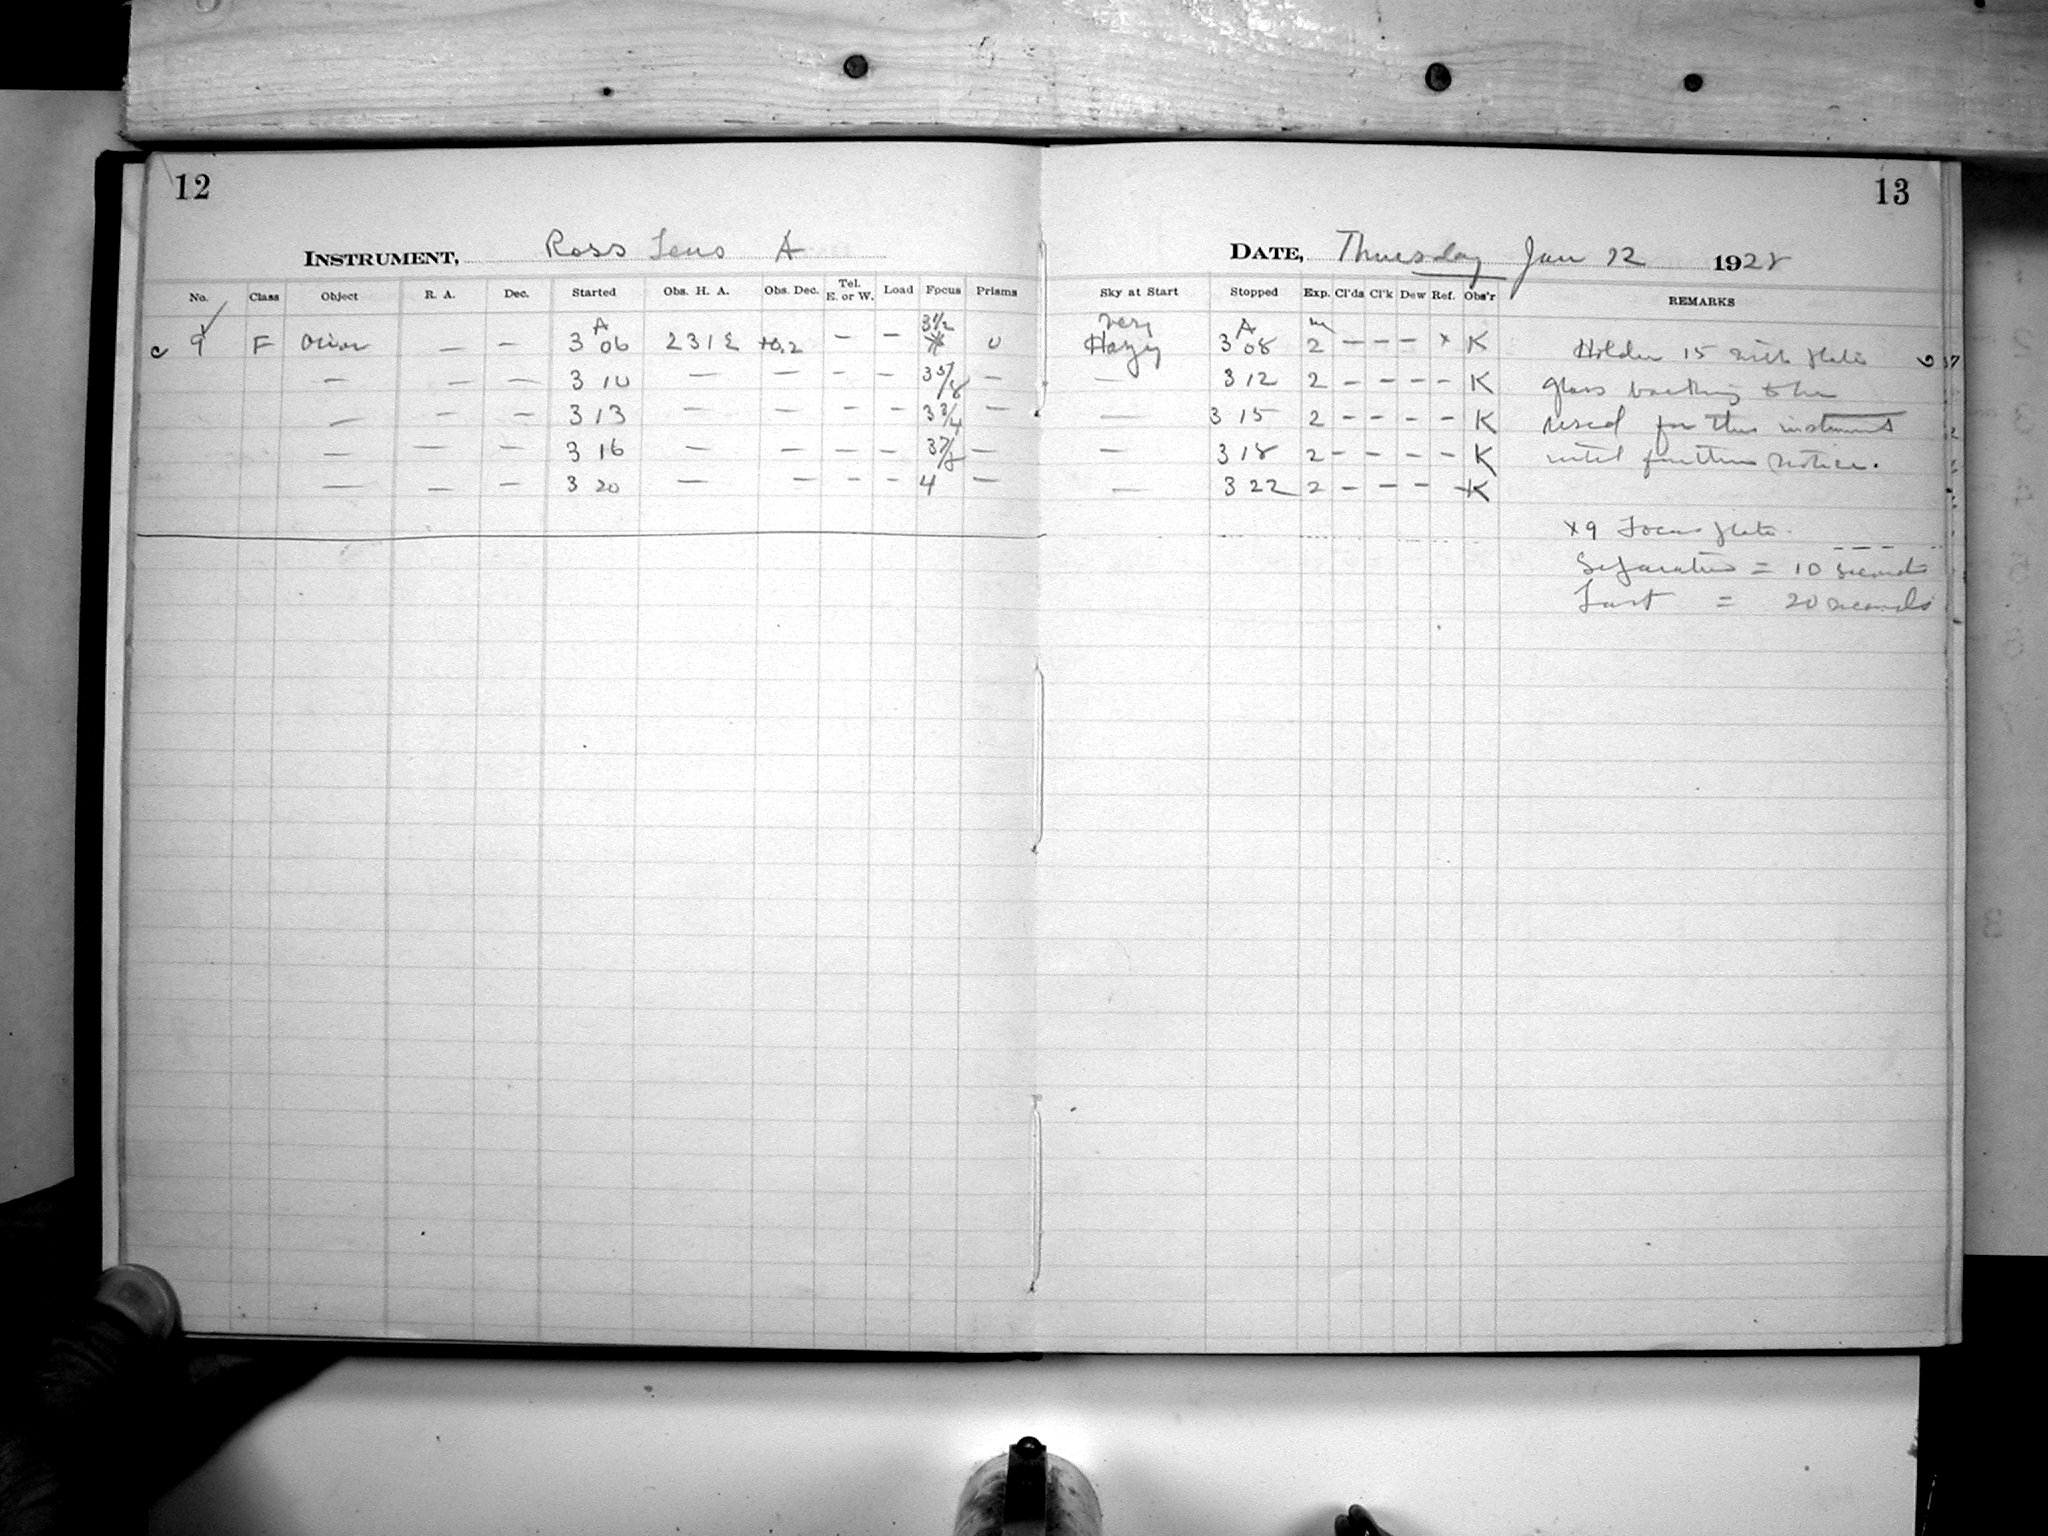 12
INSTRUMENT, Ross Lens A
No. Class Object R. A. Dec. Started Obs. H. A. Obs. Dec. Tel. E. or W. Load Focus Prisms
c 9 F Orion — — 3 A 06 2 31 E +0.2 — — 3 1/2 0
— — — 3 10 — — — — 3 5/8 —
— — — 3 13 — — — — 3 3/4 —
— — — 3 16 — — — — 3 7/8 —
— — — 3 20 — — — — 4 —
13
DATE, Thursday Jan 12 1928
Sky at Start Stopped Exp. Cl'ds Cl'k Dew Ref. Obs'r REMARKS
Very Hazy 3 A 08 m 2 — — — x K Holder 15 with plate
— 3 12 2 — — — — K glass backing to be
— 3 15 2 — — — — K used for this instrument
— 3 18 2 — — — — K until further notice.
— 3 22 2 — — — — K
x9 Focus plate.
Separation = 10 seconds
Last = 20 seconds